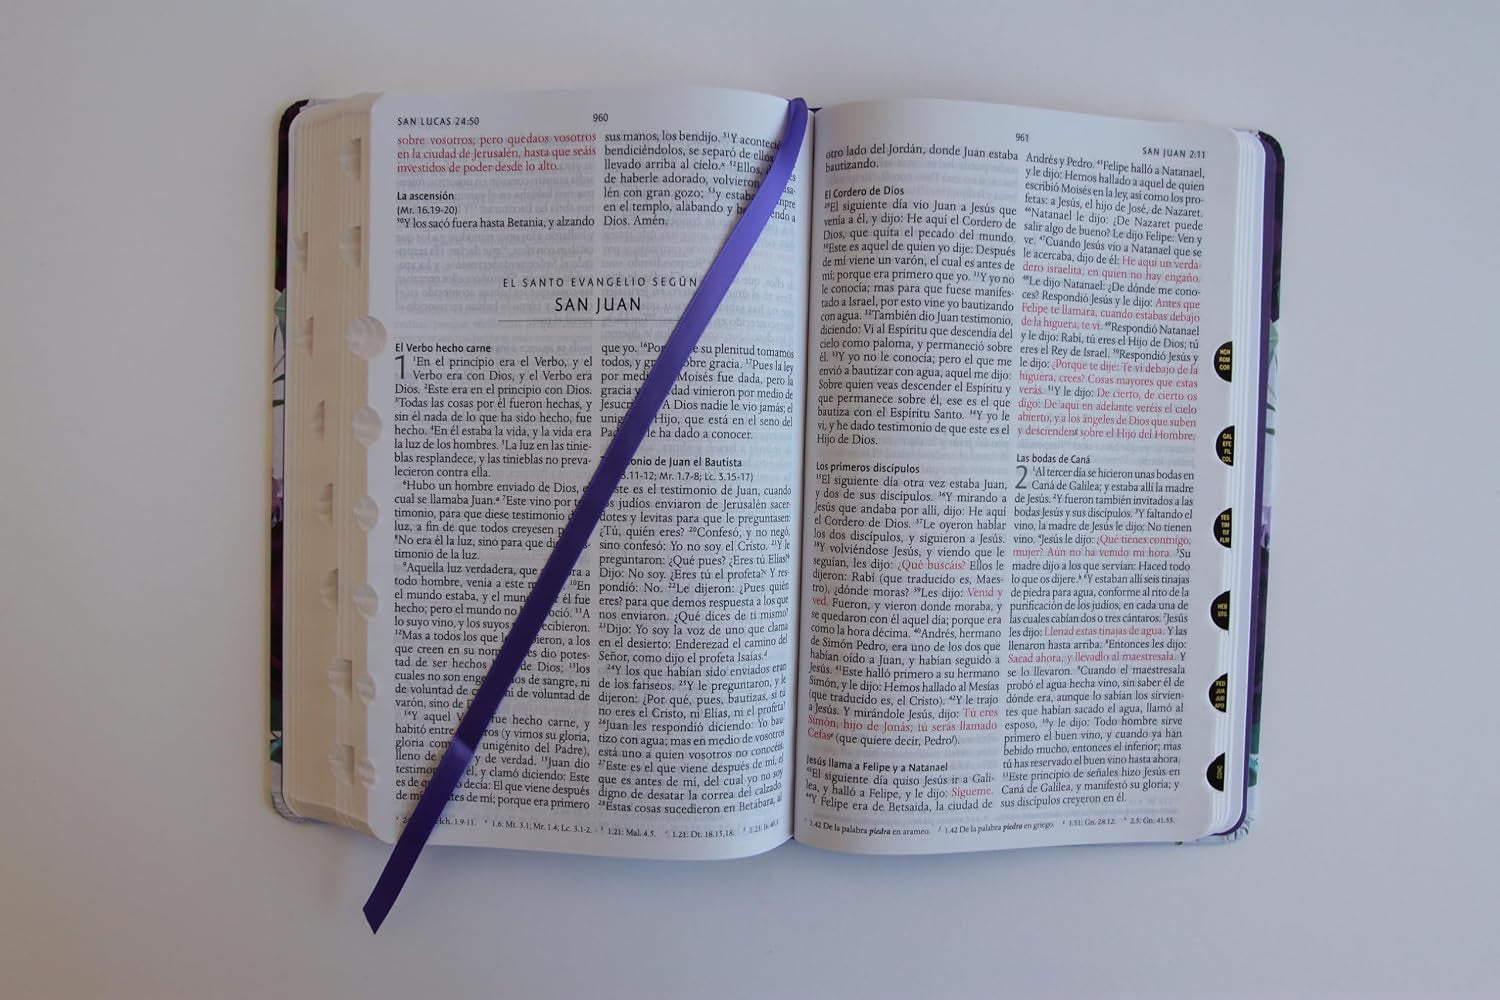 SAN LUCAS 24:50
960
sobre vosotros; pero quedaos vosotros
en la ciudad de Jerusalén, hasta que seáis
investidos de poder desde lo alto.
La ascensión
(Mr. 16.19-20)
50Y los sacó fuera hasta Betania, y alzando
sus manos, los bendijo. 51Y aconteció
bendiciéndolos, se separó de ellos
llevado arriba al cielo. 52Ellos,
de haberle adorado, volvieron
lén con gran gozo; 53y estaba
en el templo, alabando y
Dios. Amén.
EL SANTO EVANGELIO SEGÚN
SAN JUAN
El Verbo hecho carne
1 1En el principio era el Verbo, y el
Verbo era con Dios, y el Verbo era
Dios. 2Este era en el principio con Dios.
3Todas las cosas por él fueron hechas, y
sin él nada de lo que ha sido hecho, fue
hecho. 4En él estaba la vida, y la vida era
la luz de los hombres. 5La luz en las tinie-
blas resplandece, y las tinieblas no preva-
lecieron contra ella.
6Hubo un hombre enviado de Dios,
cual se llamaba Juan. 7Este vino por
timonio, para que diese testimonio
luz, a fin de que todos creyesen
8No era él la luz, sino para que
timonio de la luz.
9Aquella luz verdadera, que a
todo hombre, venía a este 10En
el mundo estaba, y el mundo él fue
hecho; pero el mundo no 11A
lo suyo vino, y los suyos
12Mas a todos los que a los
que creen en su dio potes-
tad de ser hechos de Dios; 13los
cuales no son de sangre, ni
de voluntad de ni de voluntad de
varón, sino de
14Y aquel fue hecho carne, y
habitó entre (y vimos su gloria,
gloria unigénito del Padre),
lleno de y de verdad. 15Juan dio
él, y clamó diciendo: Este
es de decía: El que viene después
de mí, de mí; porque era primero
que yo. 16Por su plenitud tomamos
todos, y sobre gracia. 17Pues la ley
por medio Moisés fue dada, pero la
gracia y vinieron por medio de
A Dios nadie le vio jamás; el
Hijo, que está en el seno del
le ha dado a conocer.
de Juan el Bautista
Mr. 1.7-8; Lc. 3.15-17)
es el testimonio de Juan, cuando
los judíos enviaron de Jerusalén sacer-
dotes y levitas para que le preguntasen:
¿Tú, quién eres? 20Confesó, y no negó,
sino confesó: Yo no soy el Cristo. 21Y le
preguntaron: ¿Qué pues? ¿Eres tú Elías?
Dijo: No soy. ¿Eres tú el profeta? Y res-
pondió: No. 22Le dijeron: ¿Pues quién
eres? para que demos respuesta a los que
nos enviaron. ¿Qué dices de ti mismo?
23Dijo: Yo soy la voz de uno que clama
en el desierto: Enderezad el camino del
Señor, como dijo el profeta Isaías.
24Y los que habían sido enviados eran
de los fariseos. 25Y le preguntaron, y le
dijeron: ¿Por qué, pues, bautizas, si tú
no eres el Cristo, ni Elías, ni el profeta?
26Juan les respondió diciendo: Yo bau-
tizo con agua; mas en medio de vosotros
está uno a quien vosotros no conocéis.
27Este es el que viene después de mí, el
que es antes de mí, del cual yo no soy
digno de desatar la correa del calzado.
28Estas cosas sucedieron en Betábara, al
Hch. 1.9-11. 1.6: Mt. 3.1; Mr. 1.4; Lc. 3.1-2. 1.21: Mal. 4.5. 1.21: Dt. 18.15,18. 1.23: Is. 40.3.
961
SAN JUAN 2:11
otro lado del Jordán, donde Juan estaba
bautizando.
El Cordero de Dios
29El siguiente día vio Juan a Jesús que
venía a él, y dijo: He aquí el Cordero de
Dios, que quita el pecado del mundo.
30Este es aquel de quien yo dije: Después
de mí viene un varón, el cual es antes de
mí; porque era primero que yo. 31Y yo no
le conocía; mas para que fuese manifes-
tado a Israel, por esto vine yo bautizando
con agua. 32También dio Juan testimonio,
diciendo: Vi al Espíritu que descendía del
cielo como paloma, y permaneció sobre
él. 33Y yo no le conocía; pero el que me
envió a bautizar con agua, aquel me dijo:
Sobre quien veas descender el Espíritu y
que permanece sobre él, ese es el que
bautiza con el Espíritu Santo. 34Y yo le
vi, y he dado testimonio de que este es el
Hijo de Dios.
Los primeros discípulos
35El siguiente día otra vez estaba Juan,
y dos de sus discípulos. 36Y mirando a
Jesús que andaba por allí, dijo: He aquí
el Cordero de Dios. 37Le oyeron hablar
los dos discípulos, y siguieron a Jesús.
38Y volviéndose Jesús, y viendo que le
seguían, les dijo: ¿Qué buscáis? Ellos le
dijeron: Rabí (que traducido es, Maes-
tro), ¿dónde moras? 39Les dijo: Venid y
ved. Fueron, y vieron donde moraba, y
se quedaron con él aquel día; porque era
como la hora décima. 40Andrés, hermano
de Simón Pedro, era uno de los dos que
habían oído a Juan, y habían seguido a
Jesús. 41Este halló primero a su hermano
Simón, y le dijo: Hemos hallado al Mesías
(que traducido es, el Cristo). 42Y le trajo
a Jesús. Y mirándole Jesús, dijo: Tú eres
Simón, hijo de Jonás; tú serás llamado
Cefas (que quiere decir, Pedro).
Jesús llama a Felipe y a Natanael
43El siguiente día quiso Jesús ir a Gali-
lea, y halló a Felipe, y le dijo: Sígueme.
44Y Felipe era de Betsaida, la ciudad de
Andrés y Pedro. 45Felipe halló a Natanael,
y le dijo: Hemos hallado a aquel de quien
escribió Moisés en la ley, así como los pro-
fetas: a Jesús, el hijo de José, de Nazaret.
46Natanael le dijo: ¿De Nazaret puede
salir algo de bueno? Le dijo Felipe: Ven y
ve. 47Cuando Jesús vio a Natanael que se
le acercaba, dijo de él: He aquí un verda-
dero israelita, en quien no hay engaño.
48Le dijo Natanael: ¿De dónde me cono-
ces? Respondió Jesús y le dijo: Antes que
Felipe te llamara, cuando estabas debajo
de la higuera, te vi. 49Respondió Natanael
y le dijo: Rabí, tú eres el Hijo de Dios; tú
eres el Rey de Israel. 50Respondió Jesús y
le dijo: ¿Porque te dije: Te vi debajo de la
higuera, crees? Cosas mayores que estas
verás. 51Y le dijo: De cierto, de cierto os
digo: De aquí en adelante veréis el cielo
abierto, y a los ángeles de Dios que suben
y descienden sobre el Hijo del Hombre.
Las bodas de Caná
2 1Al tercer día se hicieron unas bodas en
Caná de Galilea; y estaba allí la madre
de Jesús. 2Y fueron también invitados a las
bodas Jesús y sus discípulos. 3Y faltando el
vino, la madre de Jesús le dijo: No tienen
vino. 4Jesús le dijo: ¿Qué tienes conmigo,
mujer? Aún no ha venido mi hora. 5Su
madre dijo a los que servían: Haced todo
lo que os dijere. 6Y estaban allí seis tinajas
de piedra para agua, conforme al rito de la
purificación de los judíos, en cada una de
las cuales cabían dos o tres cántaros. 7Jesús
les dijo: Llenad estas tinajas de agua. Y las
llenaron hasta arriba. 8Entonces les dijo:
Sacad ahora, y llevadlo al maestresala. Y
se lo llevaron. 9Cuando el maestresala
probó el agua hecha vino, sin saber él de
dónde era, aunque lo sabían los sirvien-
tes que habían sacado el agua, llamó al
esposo, 10y le dijo: Todo hombre sirve
primero el buen vino, y cuando ya han
bebido mucho, entonces el inferior; mas
tú has reservado el buen vino hasta ahora.
11Este principio de señales hizo Jesús en
Caná de Galilea, y manifestó su gloria; y
sus discípulos creyeron en él.
1.42 De la palabra piedra en arameo. 1.42 De la palabra piedra en griego. 1.51: Gn. 28.12. 2.5: Gn. 41.55.
HCH
ROM
COR
GAL
EFE
FIL
COL
TES
TIM
TIT
FLM
HEB
STG
PED
JUA
JUD
APO
CONC